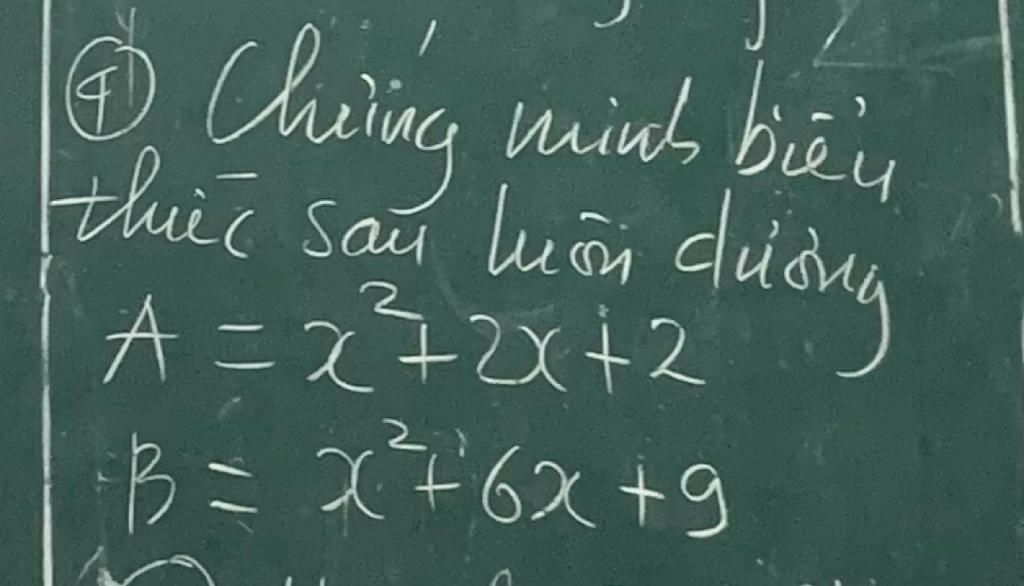 ④ Chứng minh biểu
thức sau luôn dương
A = x² + 2x + 2
B = x² + 6x + 9